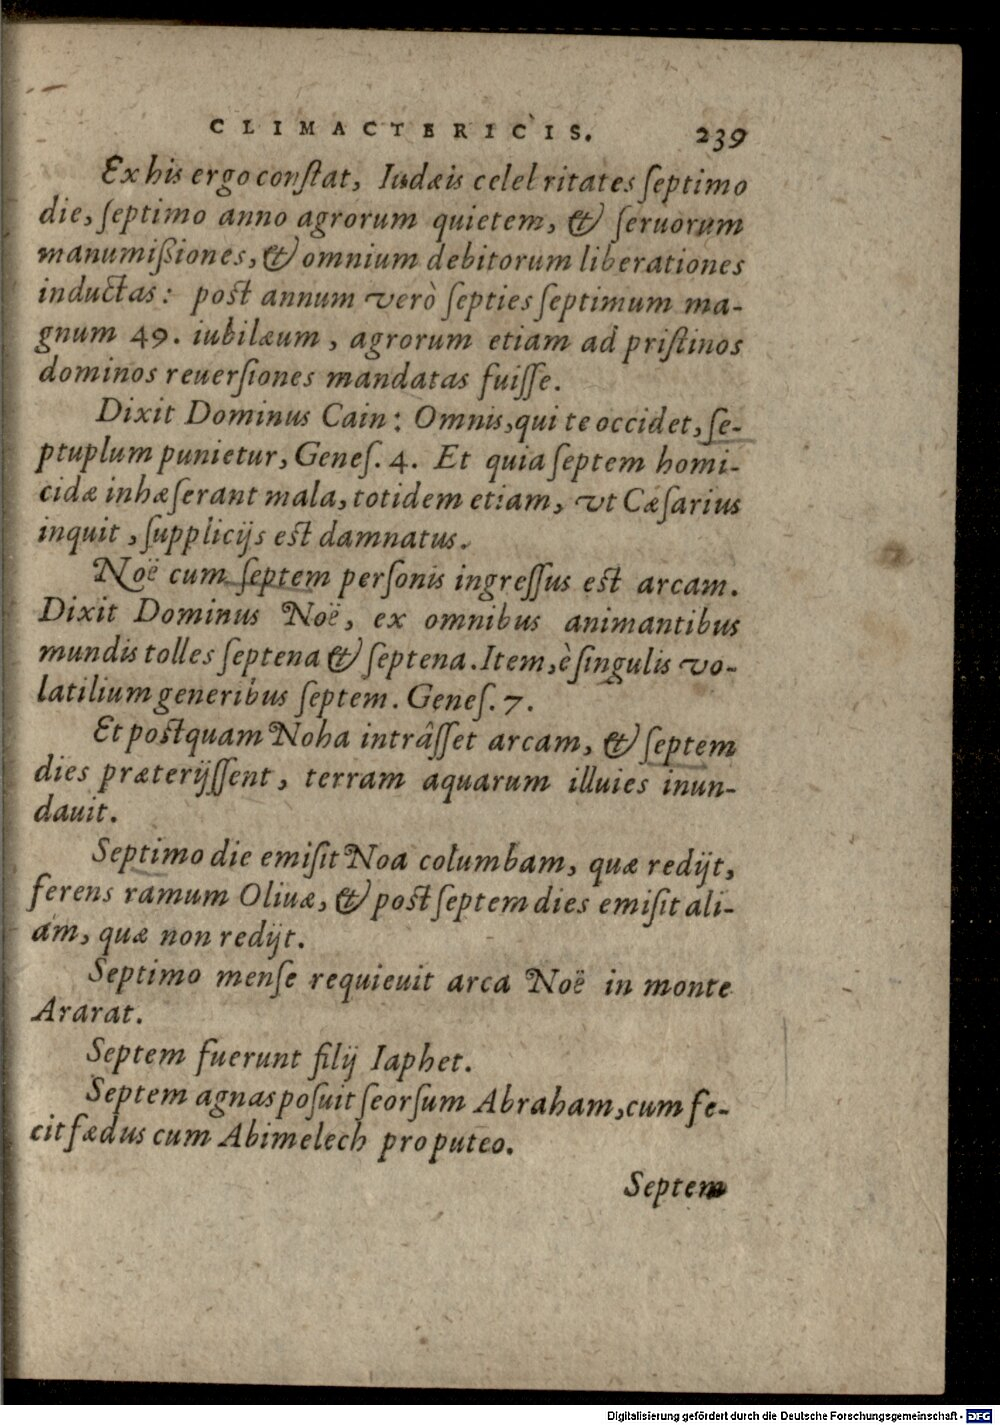 CLIMACTERICIS. 239
Ex his ergo conſtat, Iudæis celebritates ſeptimo
die, ſeptimo anno agrorum quietem, & ſeruorum
manumißiones, & omnium debitorum liberationes
inductas: post annum verò ſepties ſeptimum ma-
gnum 49. iubilæum, agrorum etiam ad priſtinos
dominos reuerſiones mandatas fuiſſe.
Dixit Dominus Cain: Omnis, qui te occidet, ſe-
ptuplum punietur, Geneſ. 4. Et quia ſeptem homi-
cidæ inhæſerant mala, totidem etiam, vt Cæſarius
inquit, ſupplicijs est damnatus.
Noë cum ſeptem perſonis ingreſſus est arcam.
Dixit Dominus Noë, ex omnibus animantibus
mundis tolles ſeptena & ſeptena. Item, è ſingulis vo-
latilium generibus ſeptem. Geneſ. 7.
Et postquam Noha intrâſſet arcam, & ſeptem
dies præterijſſent, terram aquarum illuies inun-
dauit.
Septimo die emiſit Noa columbam, quæ redijt,
ferens ramum Oliuæ, & post ſeptem dies emiſit ali-
am, quæ non redijt.
Septimo menſe requieuit arca Noë in monte
Ararat.
Septem fuerunt filij Iaphet.
Septem agnas poſuit ſeorſum Abraham, cum fe-
cit fædus cum Abimelech pro puteo.
Septem
Digitalisierung gefördert durch die Deutsche Forschungsgemeinschaft - DFG